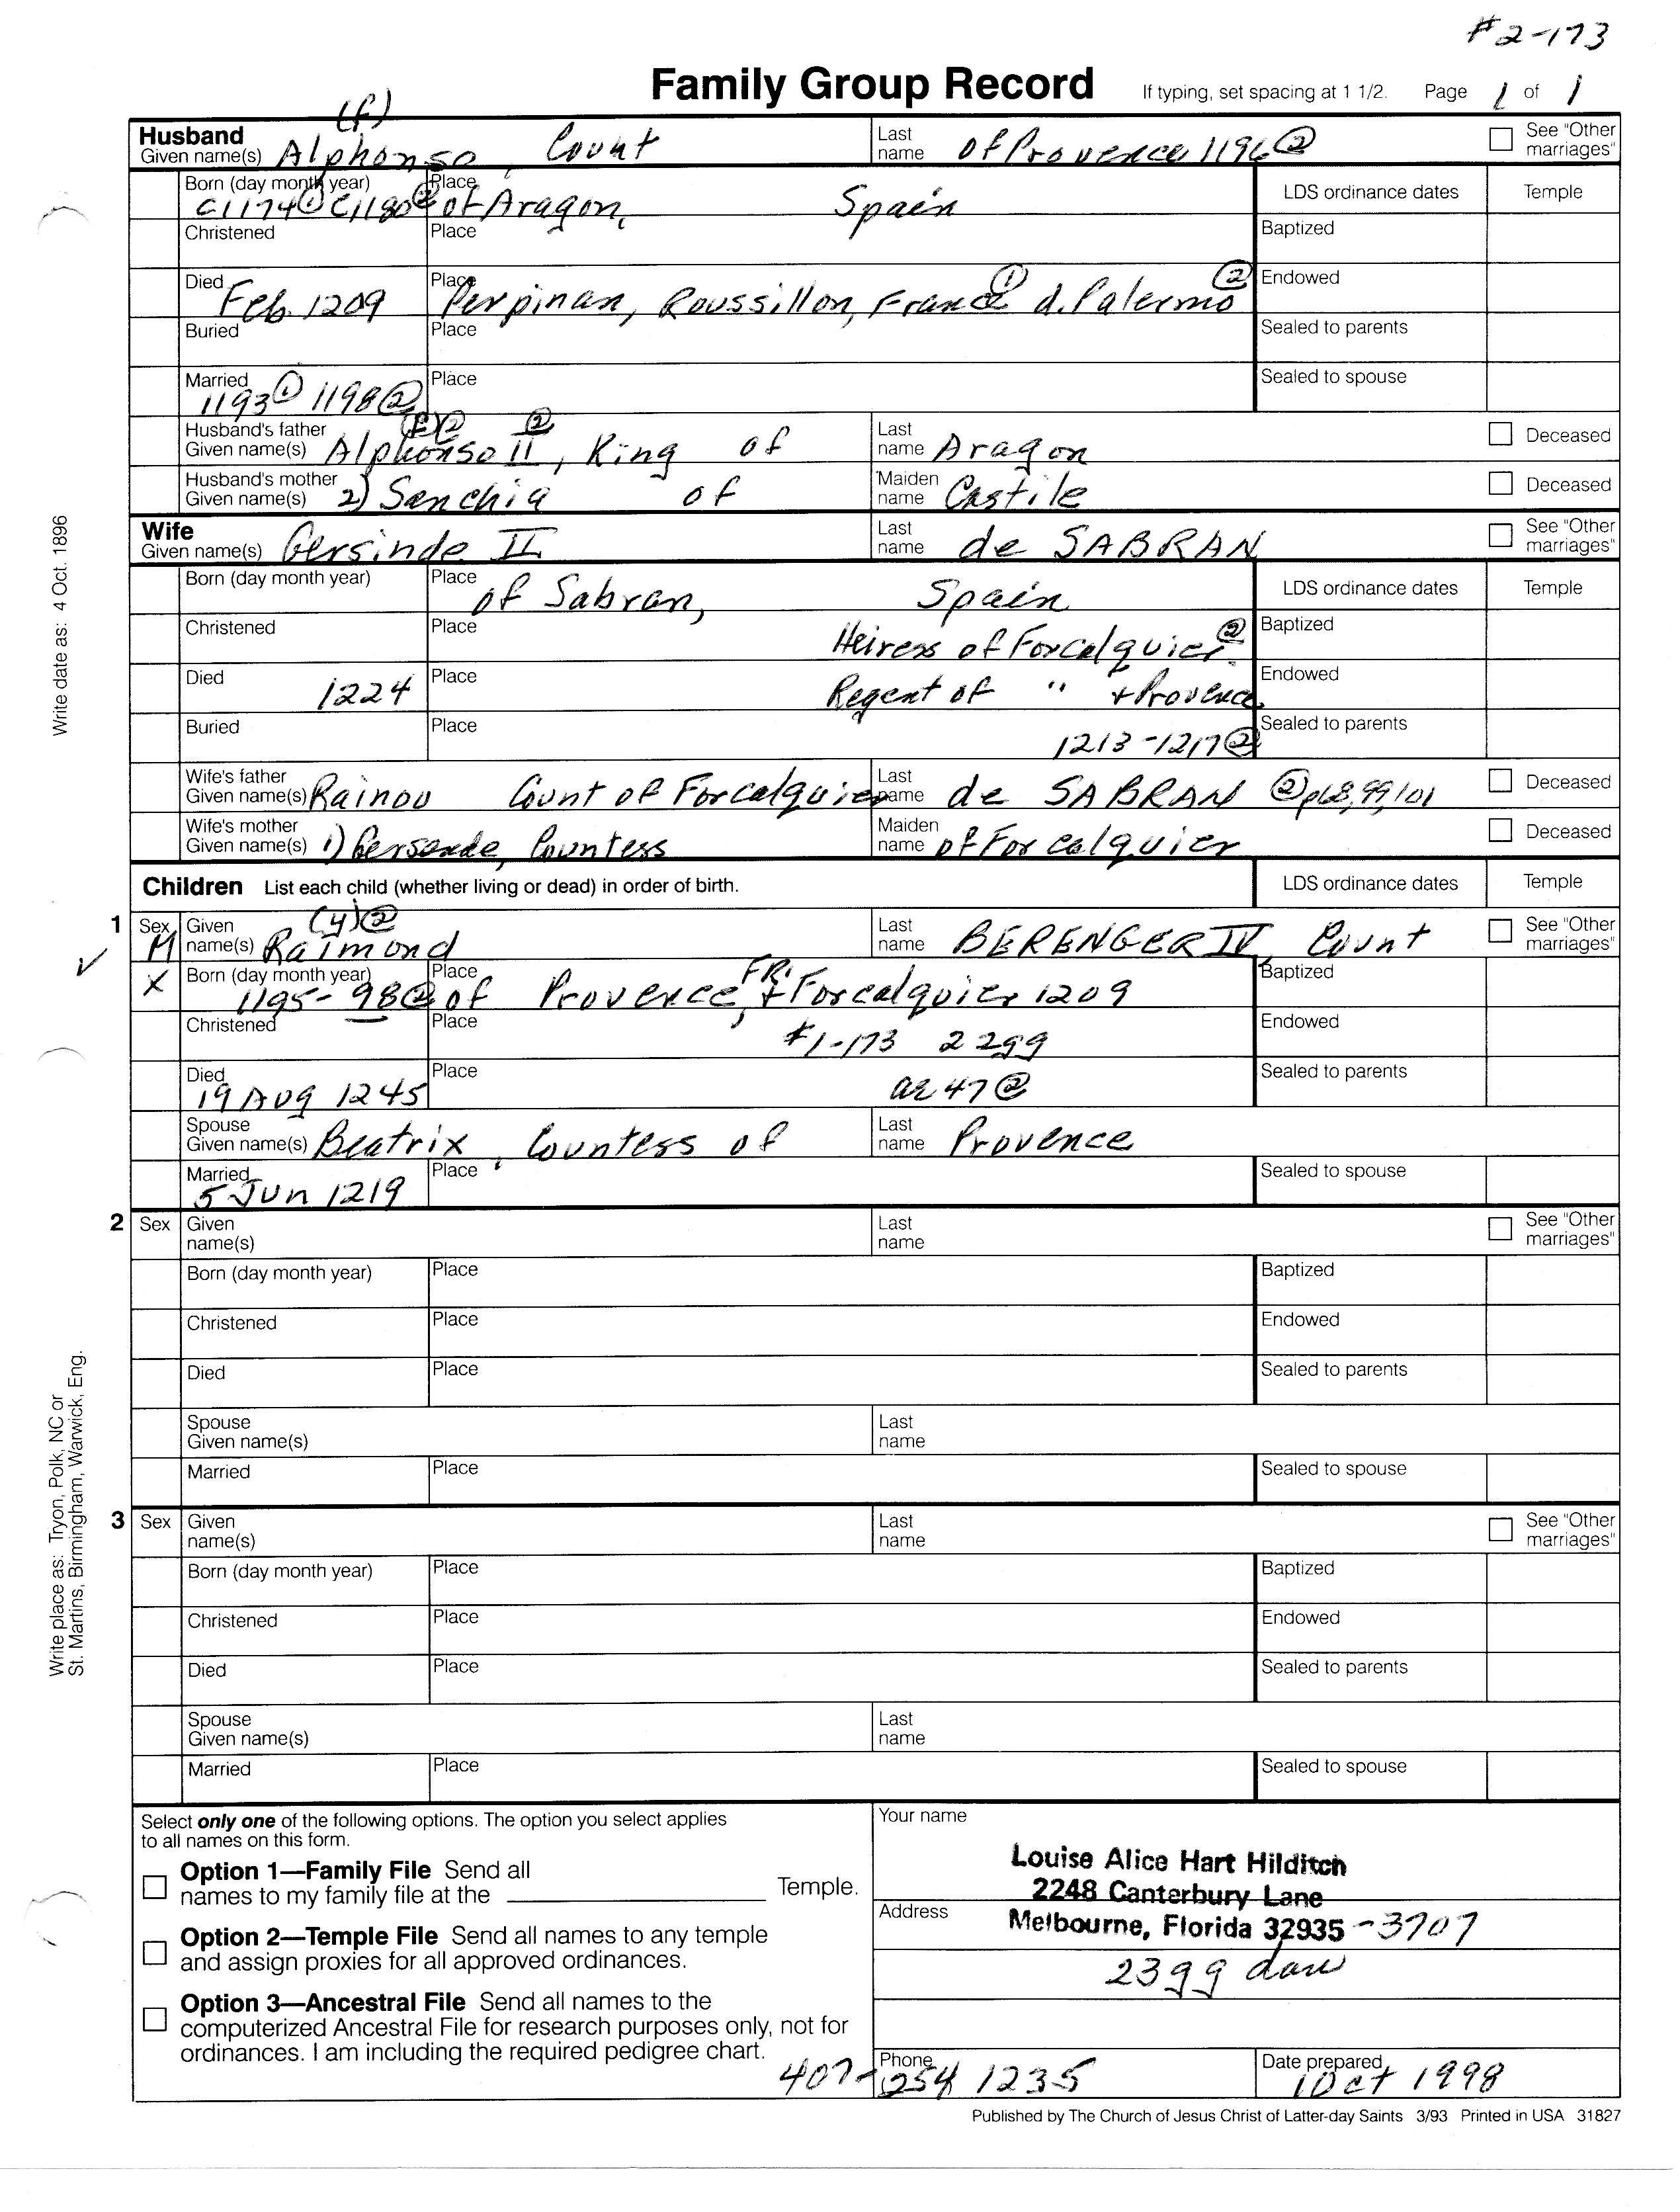 #2-173
Family Group Record If typing, set spacing at 1 1/2. Page 1 of 1
(f)
Husband
Given name(s) Alphonso, Count Last name of Provence 1196 ② See "Other marriages"
Born (day month year) C1174① C1180② Place of Aragon, Spain LDS ordinance dates Temple
Christened Place Baptized
Died Feb. 1209 Place Perpinan, Roussillon, France ① d. Palermo ② Endowed
Buried Place Sealed to parents
Married 1193① 1198② Place Sealed to spouse
Husband's father
Given name(s) Alphonso (f)② II ②, King of Last name Aragon Deceased
Husband's mother
Given name(s) 2) Sanchia of Maiden name Castile Deceased
Wife
Given name(s) Gersinde II Last name de SABRAN See "Other marriages"
Born (day month year) Place of Sabran, Spain LDS ordinance dates Temple
Christened Place Heiress of Forcalquier ② Baptized
Died 1224 Place Regent of " + Provence Endowed
Buried Place 1213-1217② Sealed to parents
Wife's father
Given name(s) Rainou Count of Forcalquier Last name de SABRAN ② p68,99,101 Deceased
Wife's mother
Given name(s) 1) Gersende, Countess Maiden name of Forcalquier Deceased
Children List each child (whether living or dead) in order of birth. LDS ordinance dates Temple
1 Sex M Given name(s) Raimond (y)② Last name BERENGER IV, Count See "Other marriages"
X Born (day month year) 1195-98② Place of Provence, FR. + Forcalquier 1209 Baptized
Christened Place #1-173 2299 Endowed
Died 19 Aug 1245 Place 47② Sealed to parents
Spouse
Given name(s) Beatrix, Countess of Last name Provence
Married 5 Jun 1219 Place Sealed to spouse
2 Sex Given name(s) Last name See "Other marriages"
Born (day month year) Place Baptized
Christened Place Endowed
Died Place Sealed to parents
Spouse
Given name(s) Last name
Married Place Sealed to spouse
3 Sex Given name(s) Last name See "Other marriages"
Born (day month year) Place Baptized
Christened Place Endowed
Died Place Sealed to parents
Spouse
Given name(s) Last name
Married Place Sealed to spouse
Write date as: 4 Oct. 1896
Write place as: Tryon, Polk, NC or
St. Martins, Birmingham, Warwick, Eng.
Select only one of the following options. The option you select applies
to all names on this form.
Option 1—Family File Send all
names to my family file at the Temple.
Option 2—Temple File Send all names to any temple
and assign proxies for all approved ordinances.
Option 3—Ancestral File Send all names to the
computerized Ancestral File for research purposes only, not for
ordinances. I am including the required pedigree chart.
Your name
Louise Alice Hart Hilditch
2248 Canterbury Lane
Address
Melbourne, Florida 32935-3707
23gg
Phone 407-254 1235
Date prepared 1 Oct 1998
Published by The Church of Jesus Christ of Latter-day Saints 3/93 Printed in USA 31827